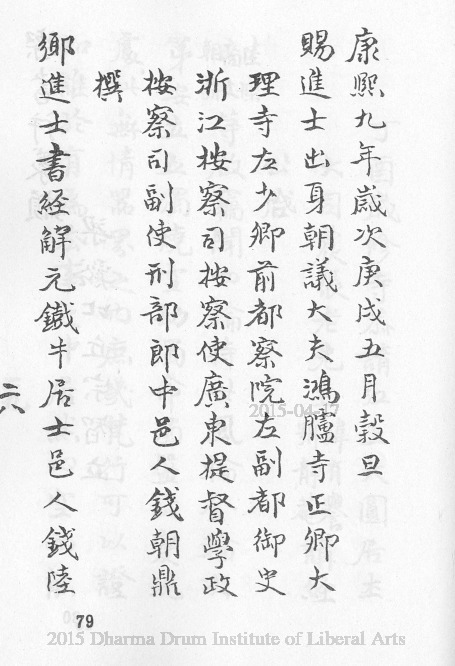 康熙九年歲次庚戌五月穀旦
賜進士出身朝議大夫鴻臚寺正卿大
理寺左少卿前都察院左副都御史
浙江按察司按察使廣東提督學政
按察司副使刑部郎中邑人錢朝鼎
撰
鄉進士書經解元鐵牛居士邑人錢陸
六
79
2015-04-17
2015 Dharma Drum Institute of Liberal Arts